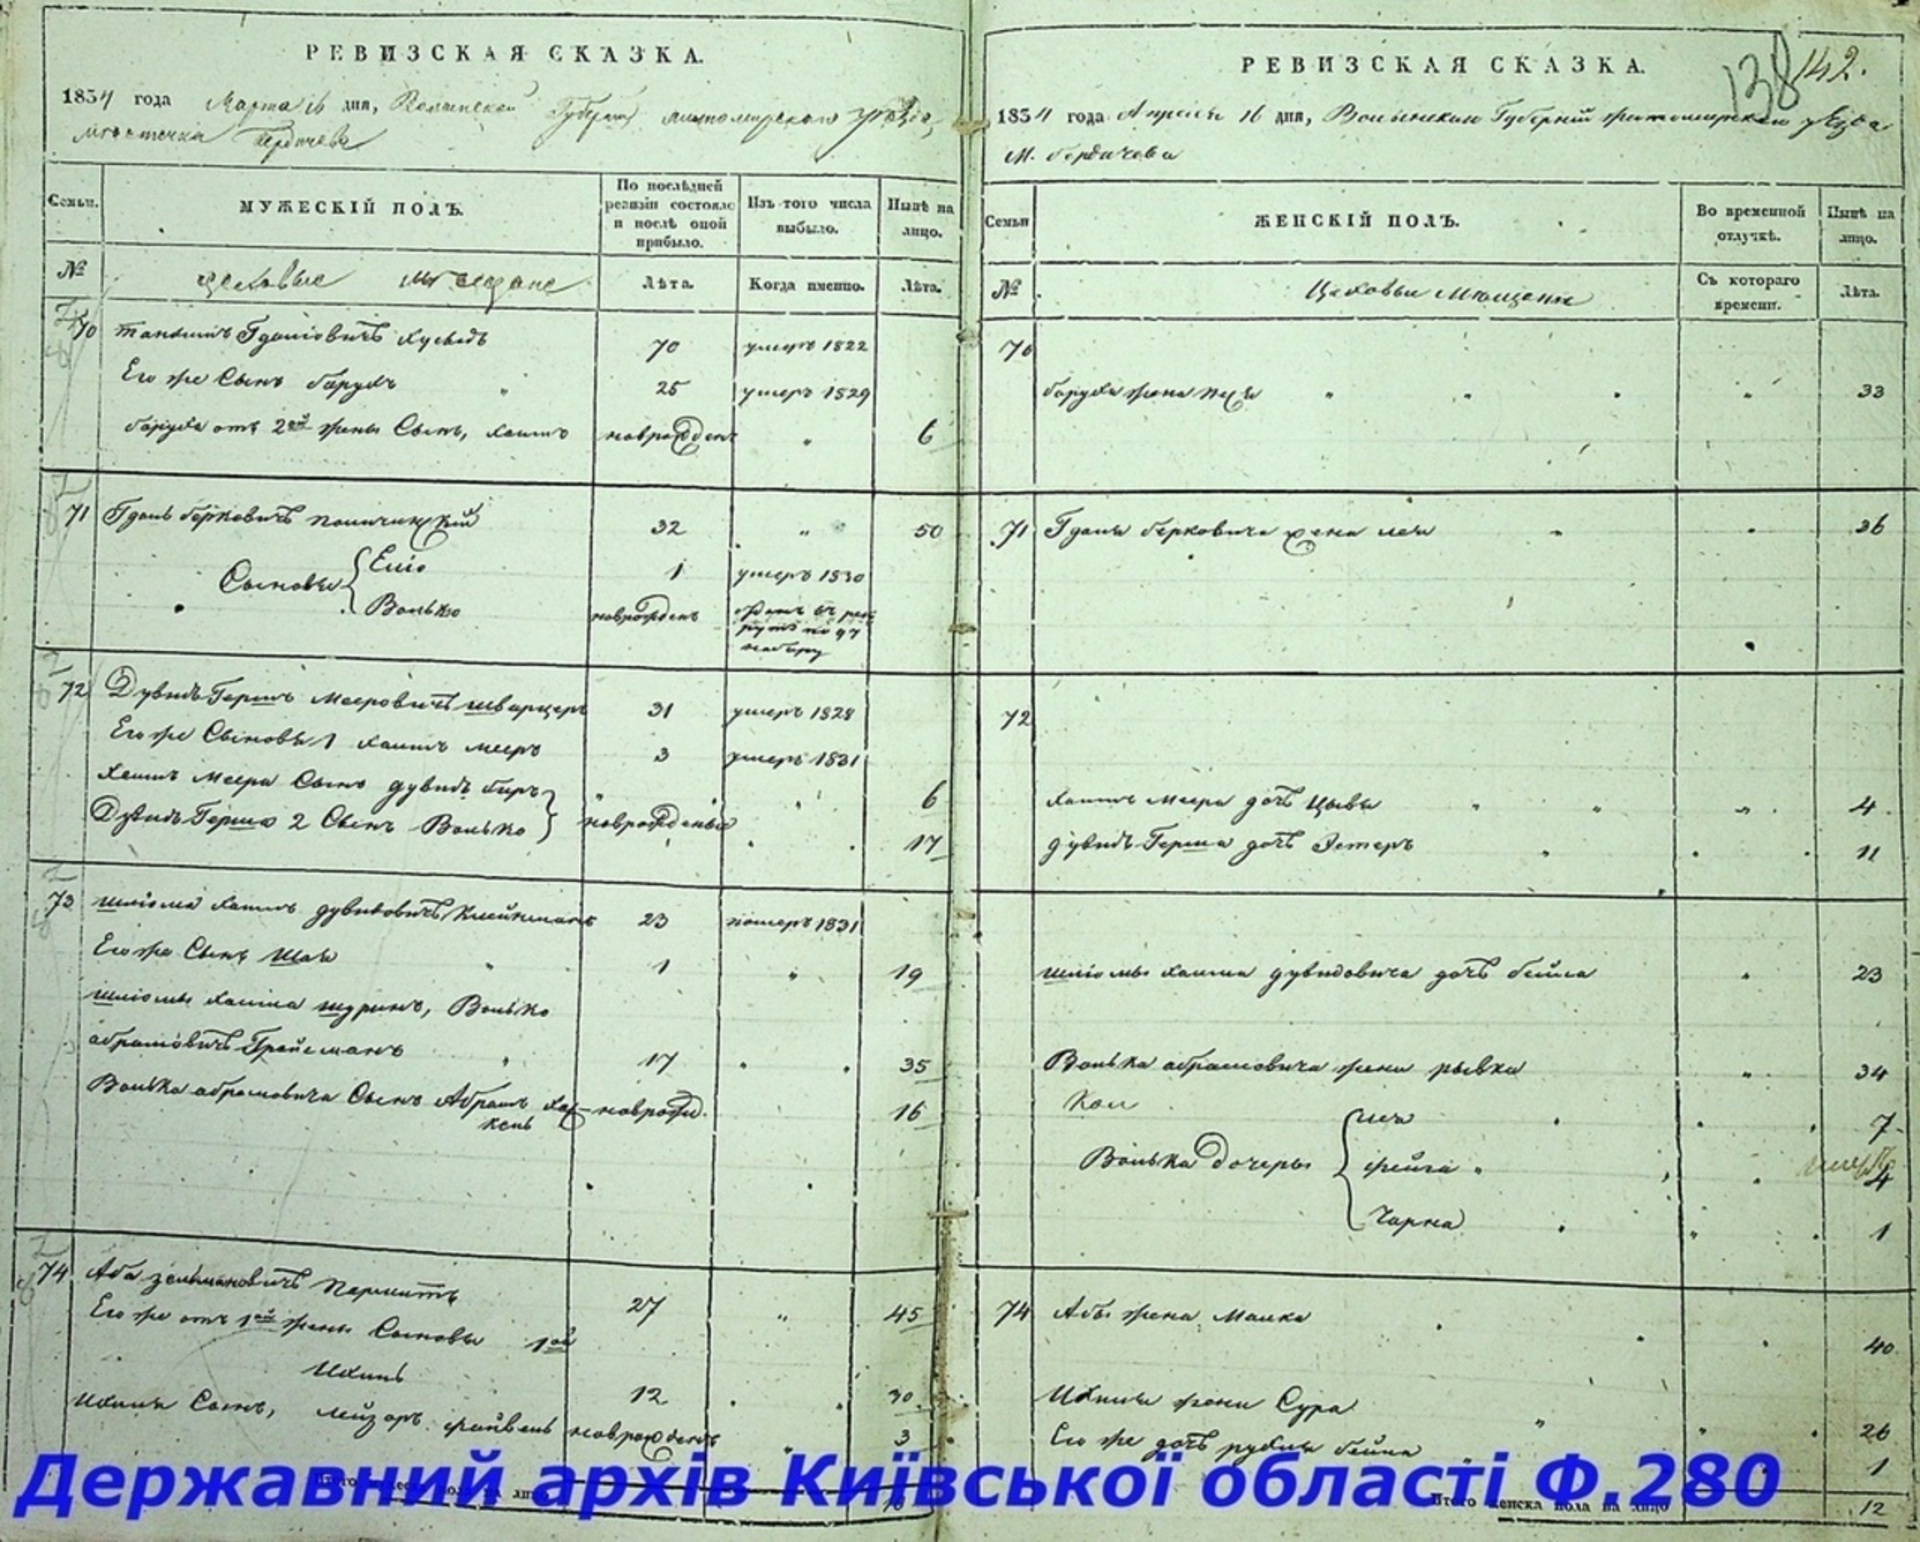 РЕВИЗСКАЯ СКАЗКА.
1834 года Марта 16 дня, Волынской Губернии Житомирского уезда,
Местечка Бердичева
Семьи. МУЖЕСКІЙ ПОЛЪ. По послѣдней ревизіи состояло и послѣ оной прибыло. Изъ того числа выбыло. Нынѣ на лицо.
№ Цеховые Мещане Лѣта. Когда именно. Лѣта.
70 Гдаліовичъ 70 умеръ 1822
Его же Сынъ Барухъ 25 умеръ 1829
Баруха отъ 2ой жены Сынъ, Хаимъ новрожденъ " 6
71 Берковичъ 32 " 50
Сыновья Ешіо 1 умеръ 1830
Волько новрожденъ
72 Дувидъ Гершъ Мееровичъ Шварцеръ 31 умеръ 1828
Его же Сыновья 1 Хаимъ Мееръ 3 умеръ 1831
Хаимъ Меера Сынъ Дувидъ Беръ " 6
Дувидъ Герша 2 Сынъ Волько новрожденые 17
73 Шліома Хаимъ Дувидовичъ Клейнманъ 23 померъ 1831
Его же Сынъ Шая 1 " 19
Шліомы Хаима шуринъ, Волько
Абрамовичъ Гройсманъ 17 35
Волька Абрамовича Сынъ Абрамъ новрожд. 16
74 Аба Зельмановичъ 27 " 45
Его же отъ 1ой жены Сыновья 1ой
Ихиль 12 30
Ихиля Сынъ, Лейзоръ Файвель новрожденъ 3
РЕВИЗСКАЯ СКАЗКА.
138 142.
1834 года Апреля 16 дня, Волынской Губерніи Житомирскаго уезда
М. Бердичева
Семьи ЖЕНСКІЙ ПОЛЪ. Во временной отлучкѣ. Нынѣ на лицо.
№ Цеховыи Мещане Съ котораго времени. Лѣта.
70
Баруха жена " 33
71 Берковича жена Лея " 36
72
Хаимъ Меера дочь Цывья " 4
Дувидъ Герша дочь Эстеръ 11
Шліомы Хаима Дувидовича дочь Бейла " 23
Волька Абрамовича жена Рывка " 34
Лея 7
Волька Дочеры Фейга 4
Чарна 1
74 Абы жена Малка 40
Ихиля жена Сура 26
Его же дочь Рухля Бейла 1
Итого женска пола на лицо 12
Державний архів Київської області Ф.280